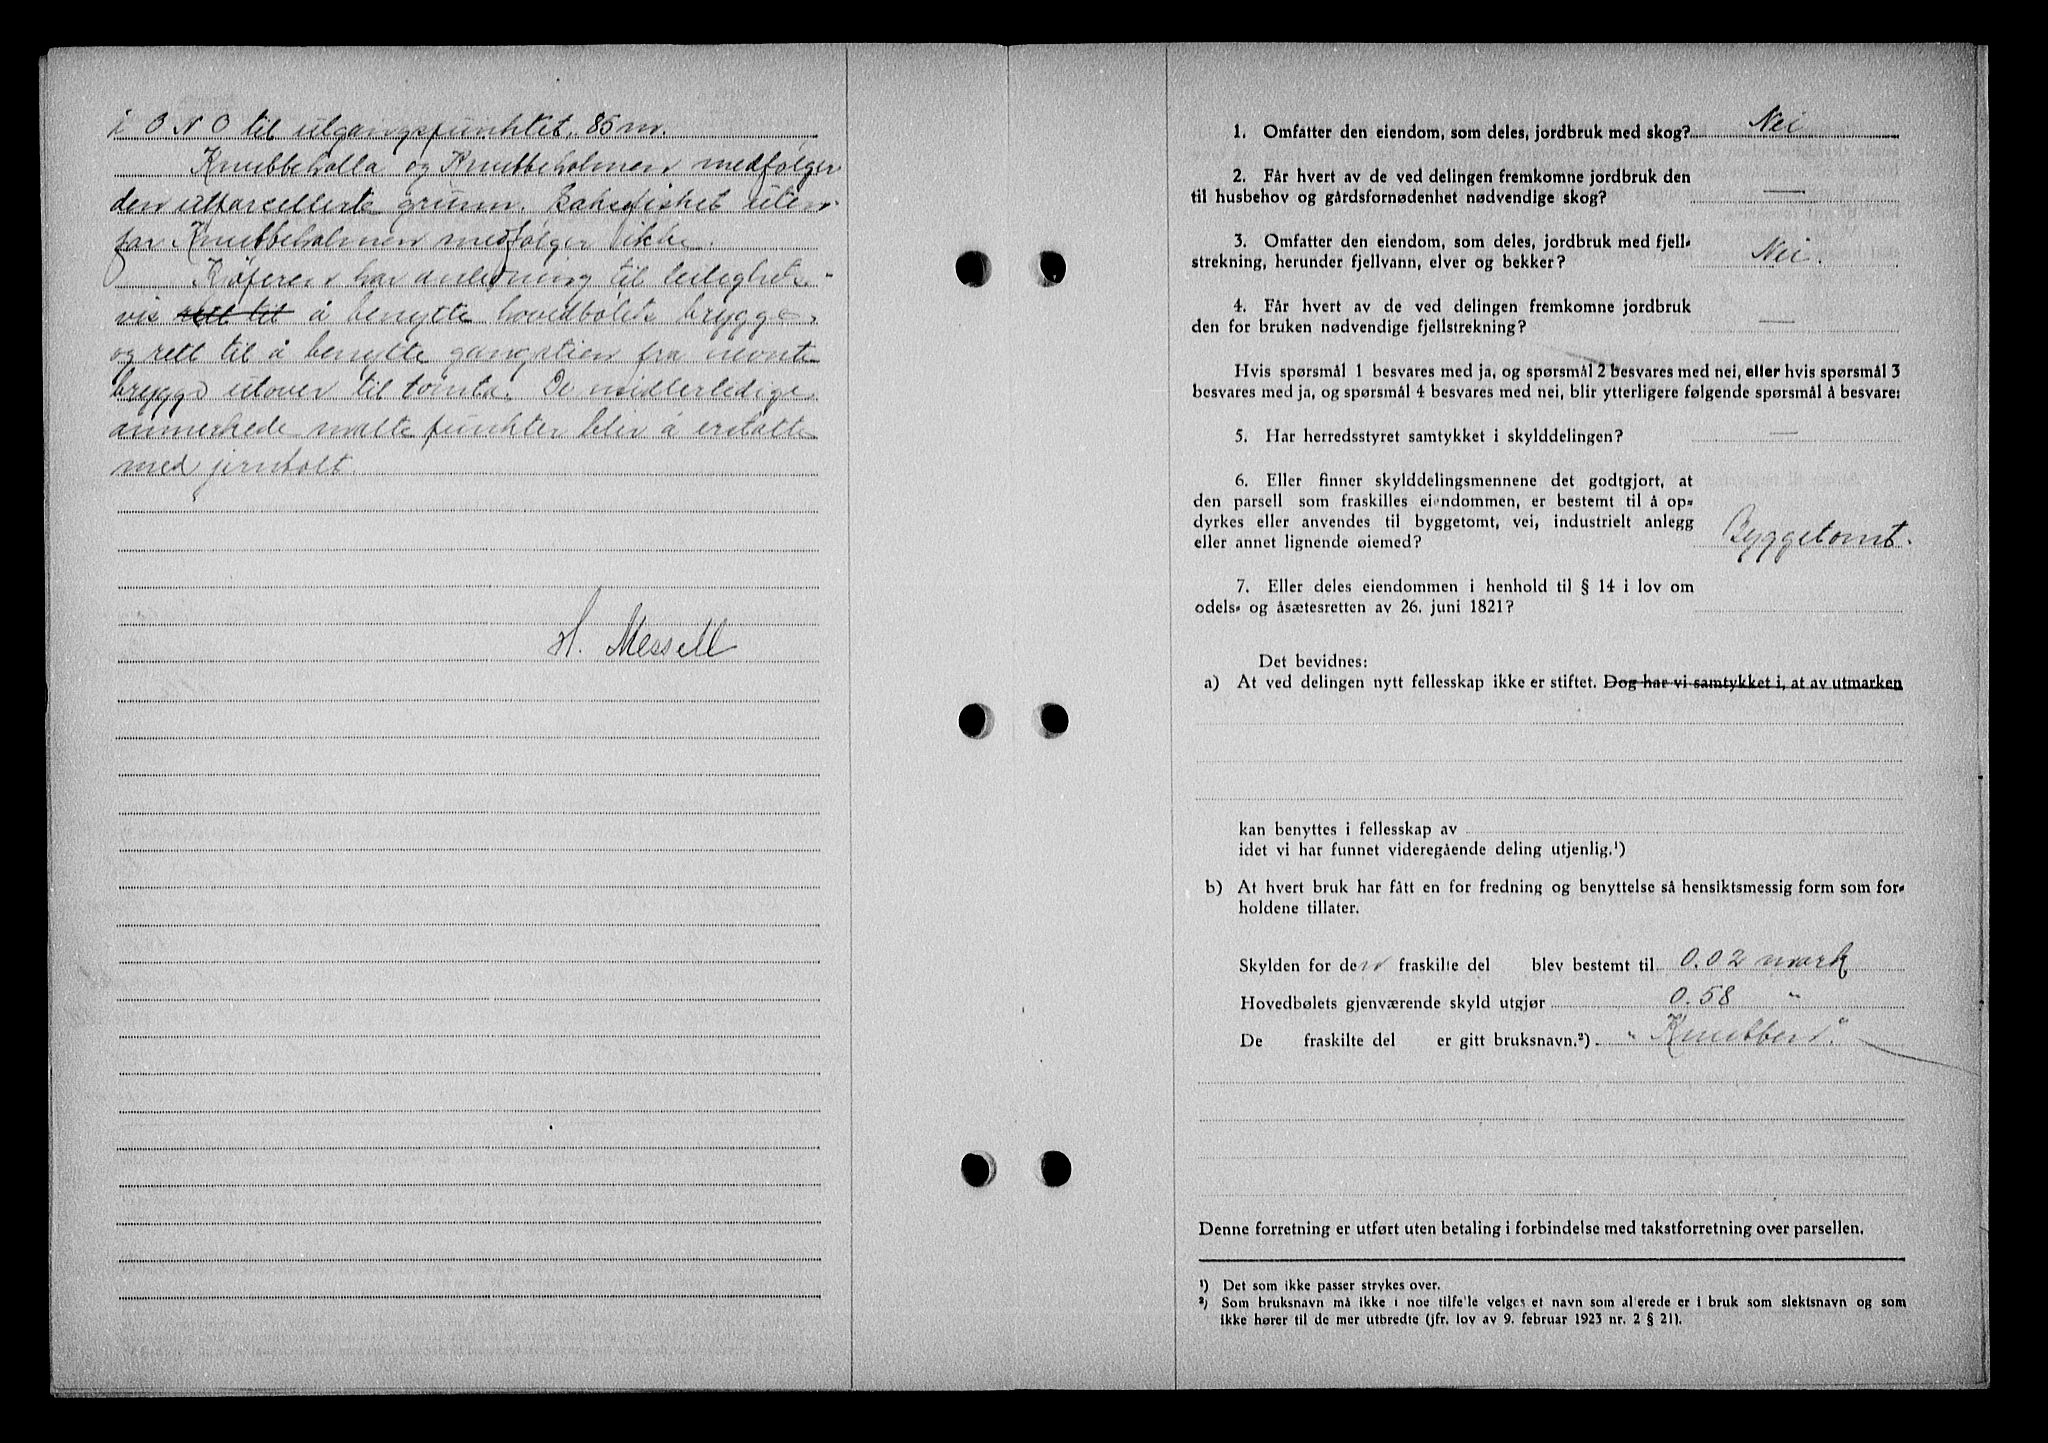 i O N O til utgangspunktet. 85 m.
Knubbeholla og Knubbeholmen medfølger
den utparcellerte grunn. Laksefisket uten-
for Knubbeholmen medfølger ikke.
Kjøperen har anledning til leilighets-
vis rett til å benytte hovedbølets brygge,
og rett til å benytte gangstien fra nevnte
brygge utover til tomta. De midlerledige
anmerkede målte punkter blir å erstatte
med jernbolt.
H. Messell
1. Omfatter den eiendom, som deles, jordbruk med skog? Nei
2. Får hvert av de ved delingen fremkomne jordbruk den
til husbehov og gårdsfornødenhet nødvendige skog? —
3. Omfatter den eiendom, som deles, jordbruk med fjell-
strekning, herunder fjellvann, elver og bekker? Nei.
4. Får hvert av de ved delingen fremkomne jordbruk
den for bruken nødvendige fjellstrekning? —
Hvis spørsmål 1 besvares med ja, og spørsmål 2 besvares med nei, eller hvis spørsmål 3
besvares med ja, og spørsmål 4 besvares med nei, blir ytterligere følgende spørsmål å besvare:
5. Har herredsstyret samtykket i skylddelingen? —
6. Eller finner skylddelingsmennene det godtgjort, at
den parsell som fraskilles eiendommen, er bestemt til å op-
dyrkes eller anvendes til byggetomt, vei, industrielt anlegg
eller annet lignende øiemed? Byggetomt.
7. Eller deles eiendommen i henhold til § 14 i lov om
odels- og åsætesretten av 26. juni 1821?
Det bevidnes:
a) At ved delingen nytt fellesskap ikke er stiftet. Dog har vi samtykket i, at av utmarken
kan benyttes i fellesskap av
idet vi har funnet videregående deling utjenlig.¹)
b) At hvert bruk har fått en for fredning og benyttelse så hensiktsmessig form som for-
holdene tillater.
Skylden for den fraskilte del blev bestemt til 0.02 mark
Hovedbølets gjenværende skyld utgjør 0.58 "
De fraskilte del er gitt bruksnavn.²) "Knubben".
Denne forretning er utført uten betaling i forbindelse med takstforretning over parsellen.
¹) Det som ikke passer strykes over.
²) Som bruksnavn må ikke i noe tilfelle velges et navn som allerede er i bruk som slektsnavn og som
ikke hører til de mer utbredte (jfr. lov av 9. februar 1923 nr. 2 § 21).